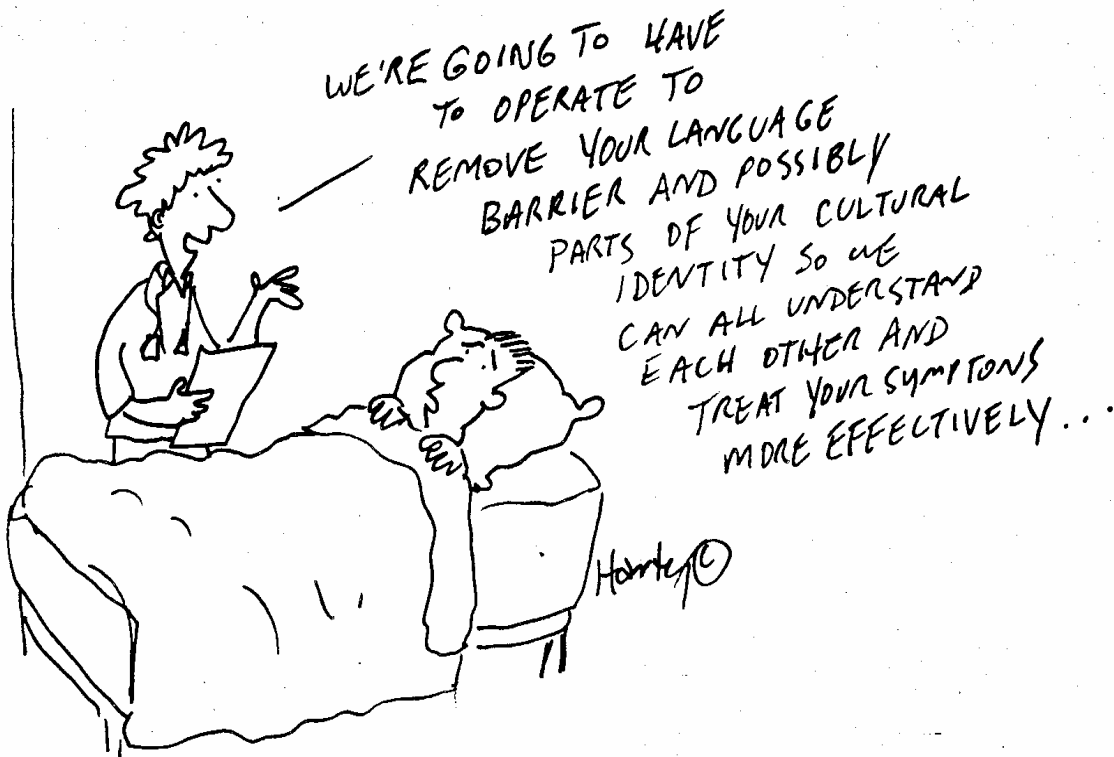 WE'RE GOING TO HAVE
TO OPERATE TO
REMOVE YOUR LANGUAGE
BARRIER AND POSSIBLY
PARTS OF YOUR CULTURAL
IDENTITY SO WE
CAN ALL UNDERSTAND
EACH OTHER AND
TREAT YOUR SYMPTONS
MORE EFFECTIVELY...
©